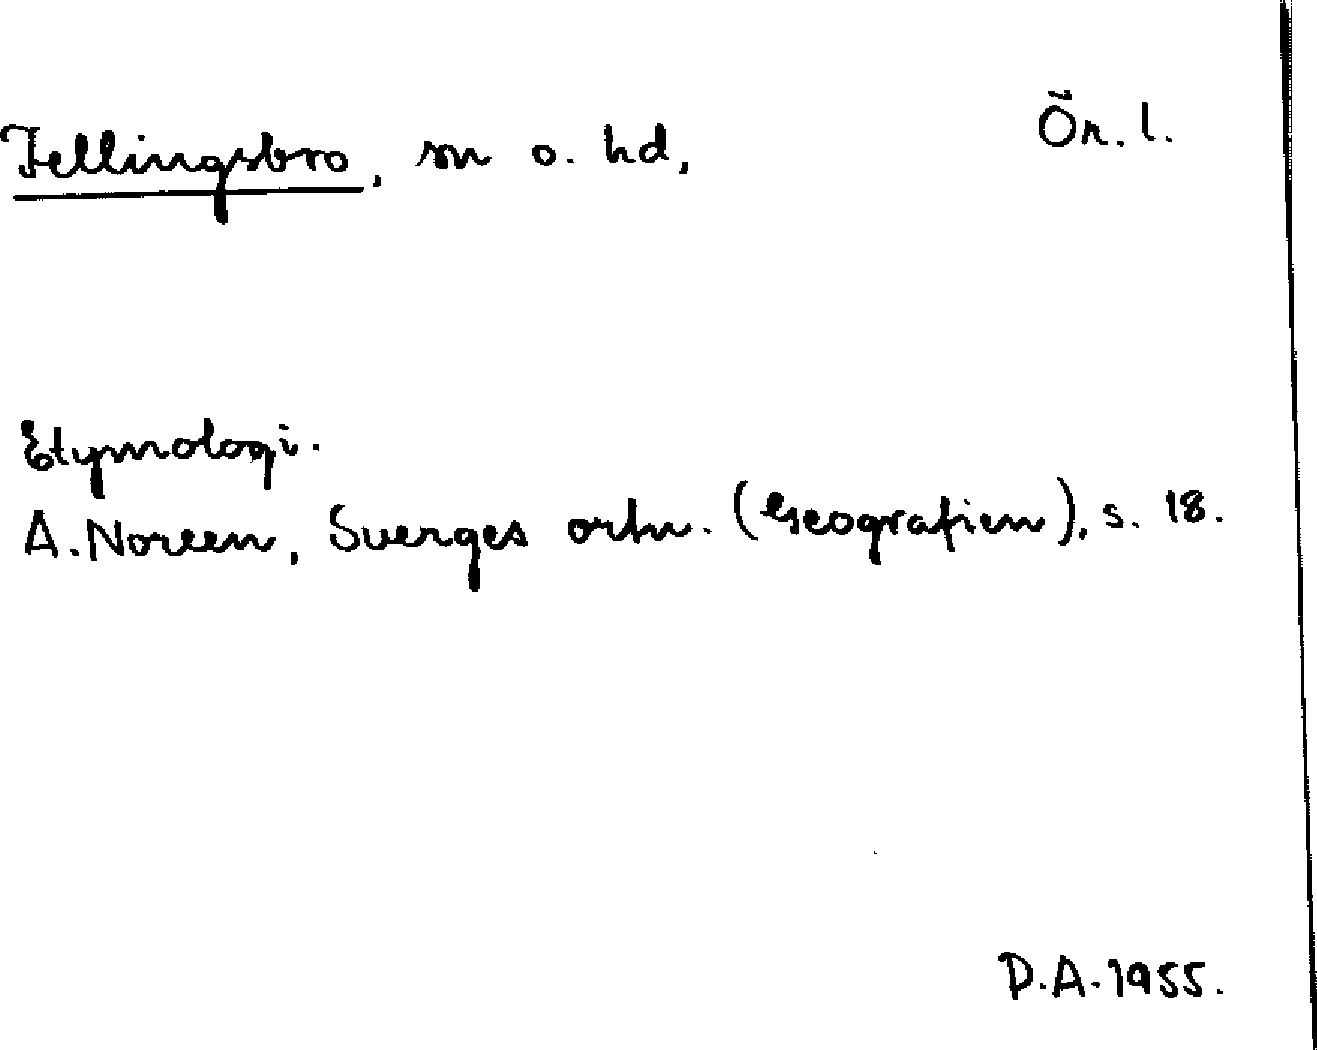 Fellingsbro, sn o. hd, Ör. l.
Etymologi.
A. Noreen, Sverges ortn. (Geografien), s. 18.
D.A. 1955.